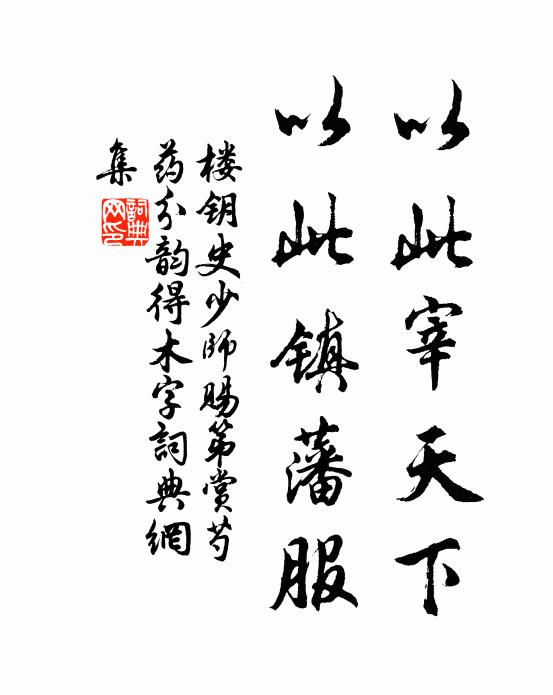 以此宰天下
以此镇藩服
楼钥史少师賜第赏芍
药分韵得木字詞典網
集
詞典网印